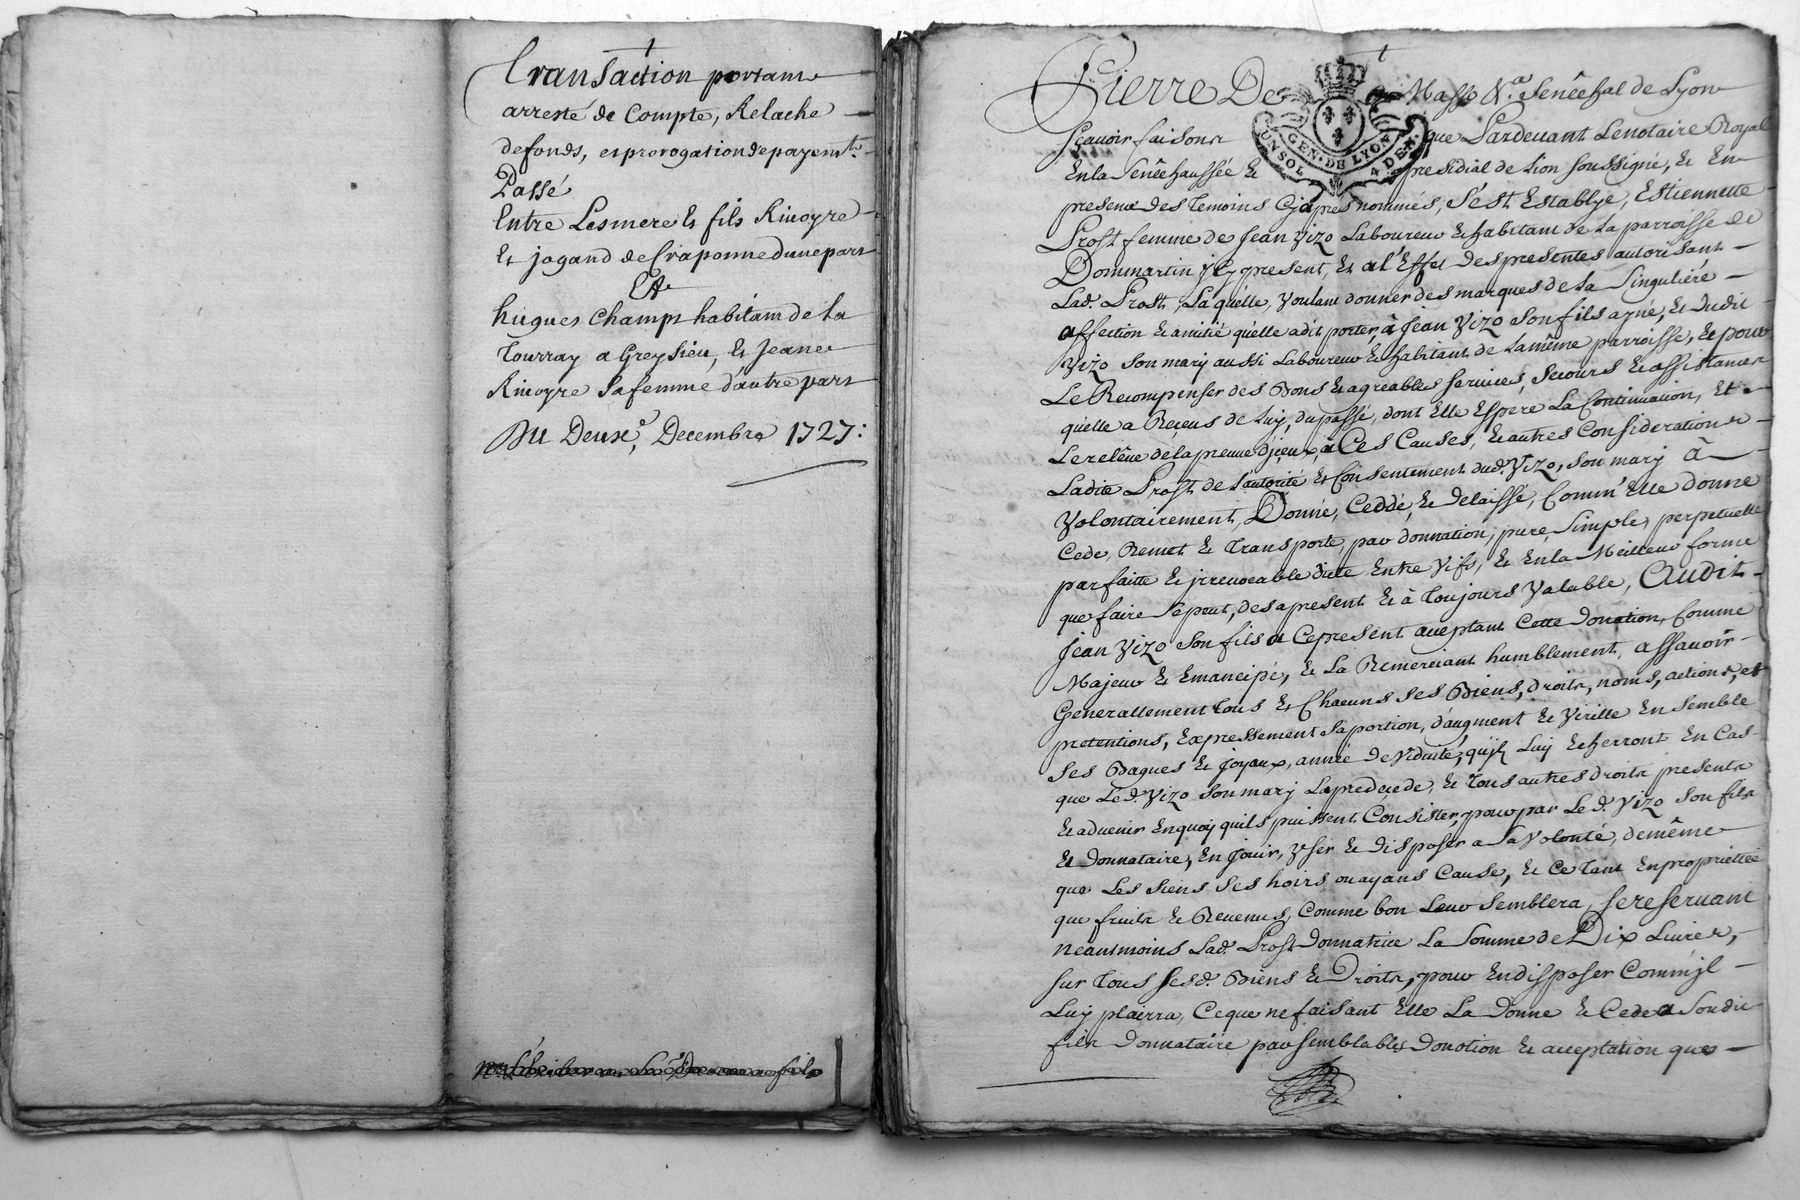 Transaction portant
arresté de Compte, Relache
de fonds, et prorogation de payemts.
Passé
Entre Les mere & fils Rivoyre
Et jogand de Craponne d'une part
Et
hugues Champt habitant de la
Tourray a Greysieu, & Jeanne
Rivoyre Sa femme d'autre part
Du Deuxe. Decembre 1727:
Pierre De Masso Sr. Senêchal de Lyon
Sçavoir faisons que Pardevant Le notaire Royal
En la Senêchaussée & presidial de Lion soussigné, & En
presence des temoins Cy aprés nommés, S'ést Establye, Estiennette
Prost femme de Jean Vizo Laboureur & habitant de La parroisse de
Dommartin jcy present, & a l'Effet des presentes autorisant
Lad. Prost, Laquélle, voulant donner des marques de La Singuliére
affection & amitié qu'elle a dit porter, à Jean Vizo Son fils ayné, & dudit
Vizo Son mary aussi Laboureur & habitant de La même parroisse, & pour
Le Recompenser des Bons & agreables Services, Secours & assistances
qu'elle a Reçeus de Luy, du passé, dont Elle Espere La Continuation, Et
Le relêve de la preuve d'jceux, à Ces Causes, & autres Considerations
Ladite Prost de L'autorité & Consentement dud. Vizo, Son mary à
Volontairement Donné, Ceddé, & delaissé, Comm'Elle donne
Cede, Remet & Transporte, par donnation, pure, Simple, perpetuelle
parfaitte & jrrevocable ditte Entre Vifs, & En la Meilleur forme
que faire Se peut, des apresent & à Toujours Valable, Audit
Jean Vizo Son fils a Ce present acceptant Cette Donation, Comme
Majeur & Emancipé, & La Remerciant humblement, assavoir
Generallement tous & Chacuns Ses Biens, droits, noms, actions, et
pretentions, Expressement Sa portion, d'augment & Virille En semble
Ses Bagues & Joyaux, année de Viduité, qu'jls Luy Echerront En Cas
que Led. Vizo Son mary La predecede, & Tous autres droits presents
& advenir En quoy quils puissent Consister, pour par Led. Vizo Son fils
& Donnataire, En Jouir, User & disposer a Sa Volonté, de même
que Les Siens Ses hoirs ou ayans Cause, & Ce Tant En proprietté
que fruits & Revenus, Comme bon Leur Semblera, Se reservant
neantmoins Lad. Prost Donnatrice La Somme de Dix Livres,
sur Tous Sesd. Biens & Droits, pour En disposer Comm'jl
Luy plairra, Ce que ne faisant Elle La Donne & Cede a Sondit
fils Donnataire par Semblables Donation & acceptation que